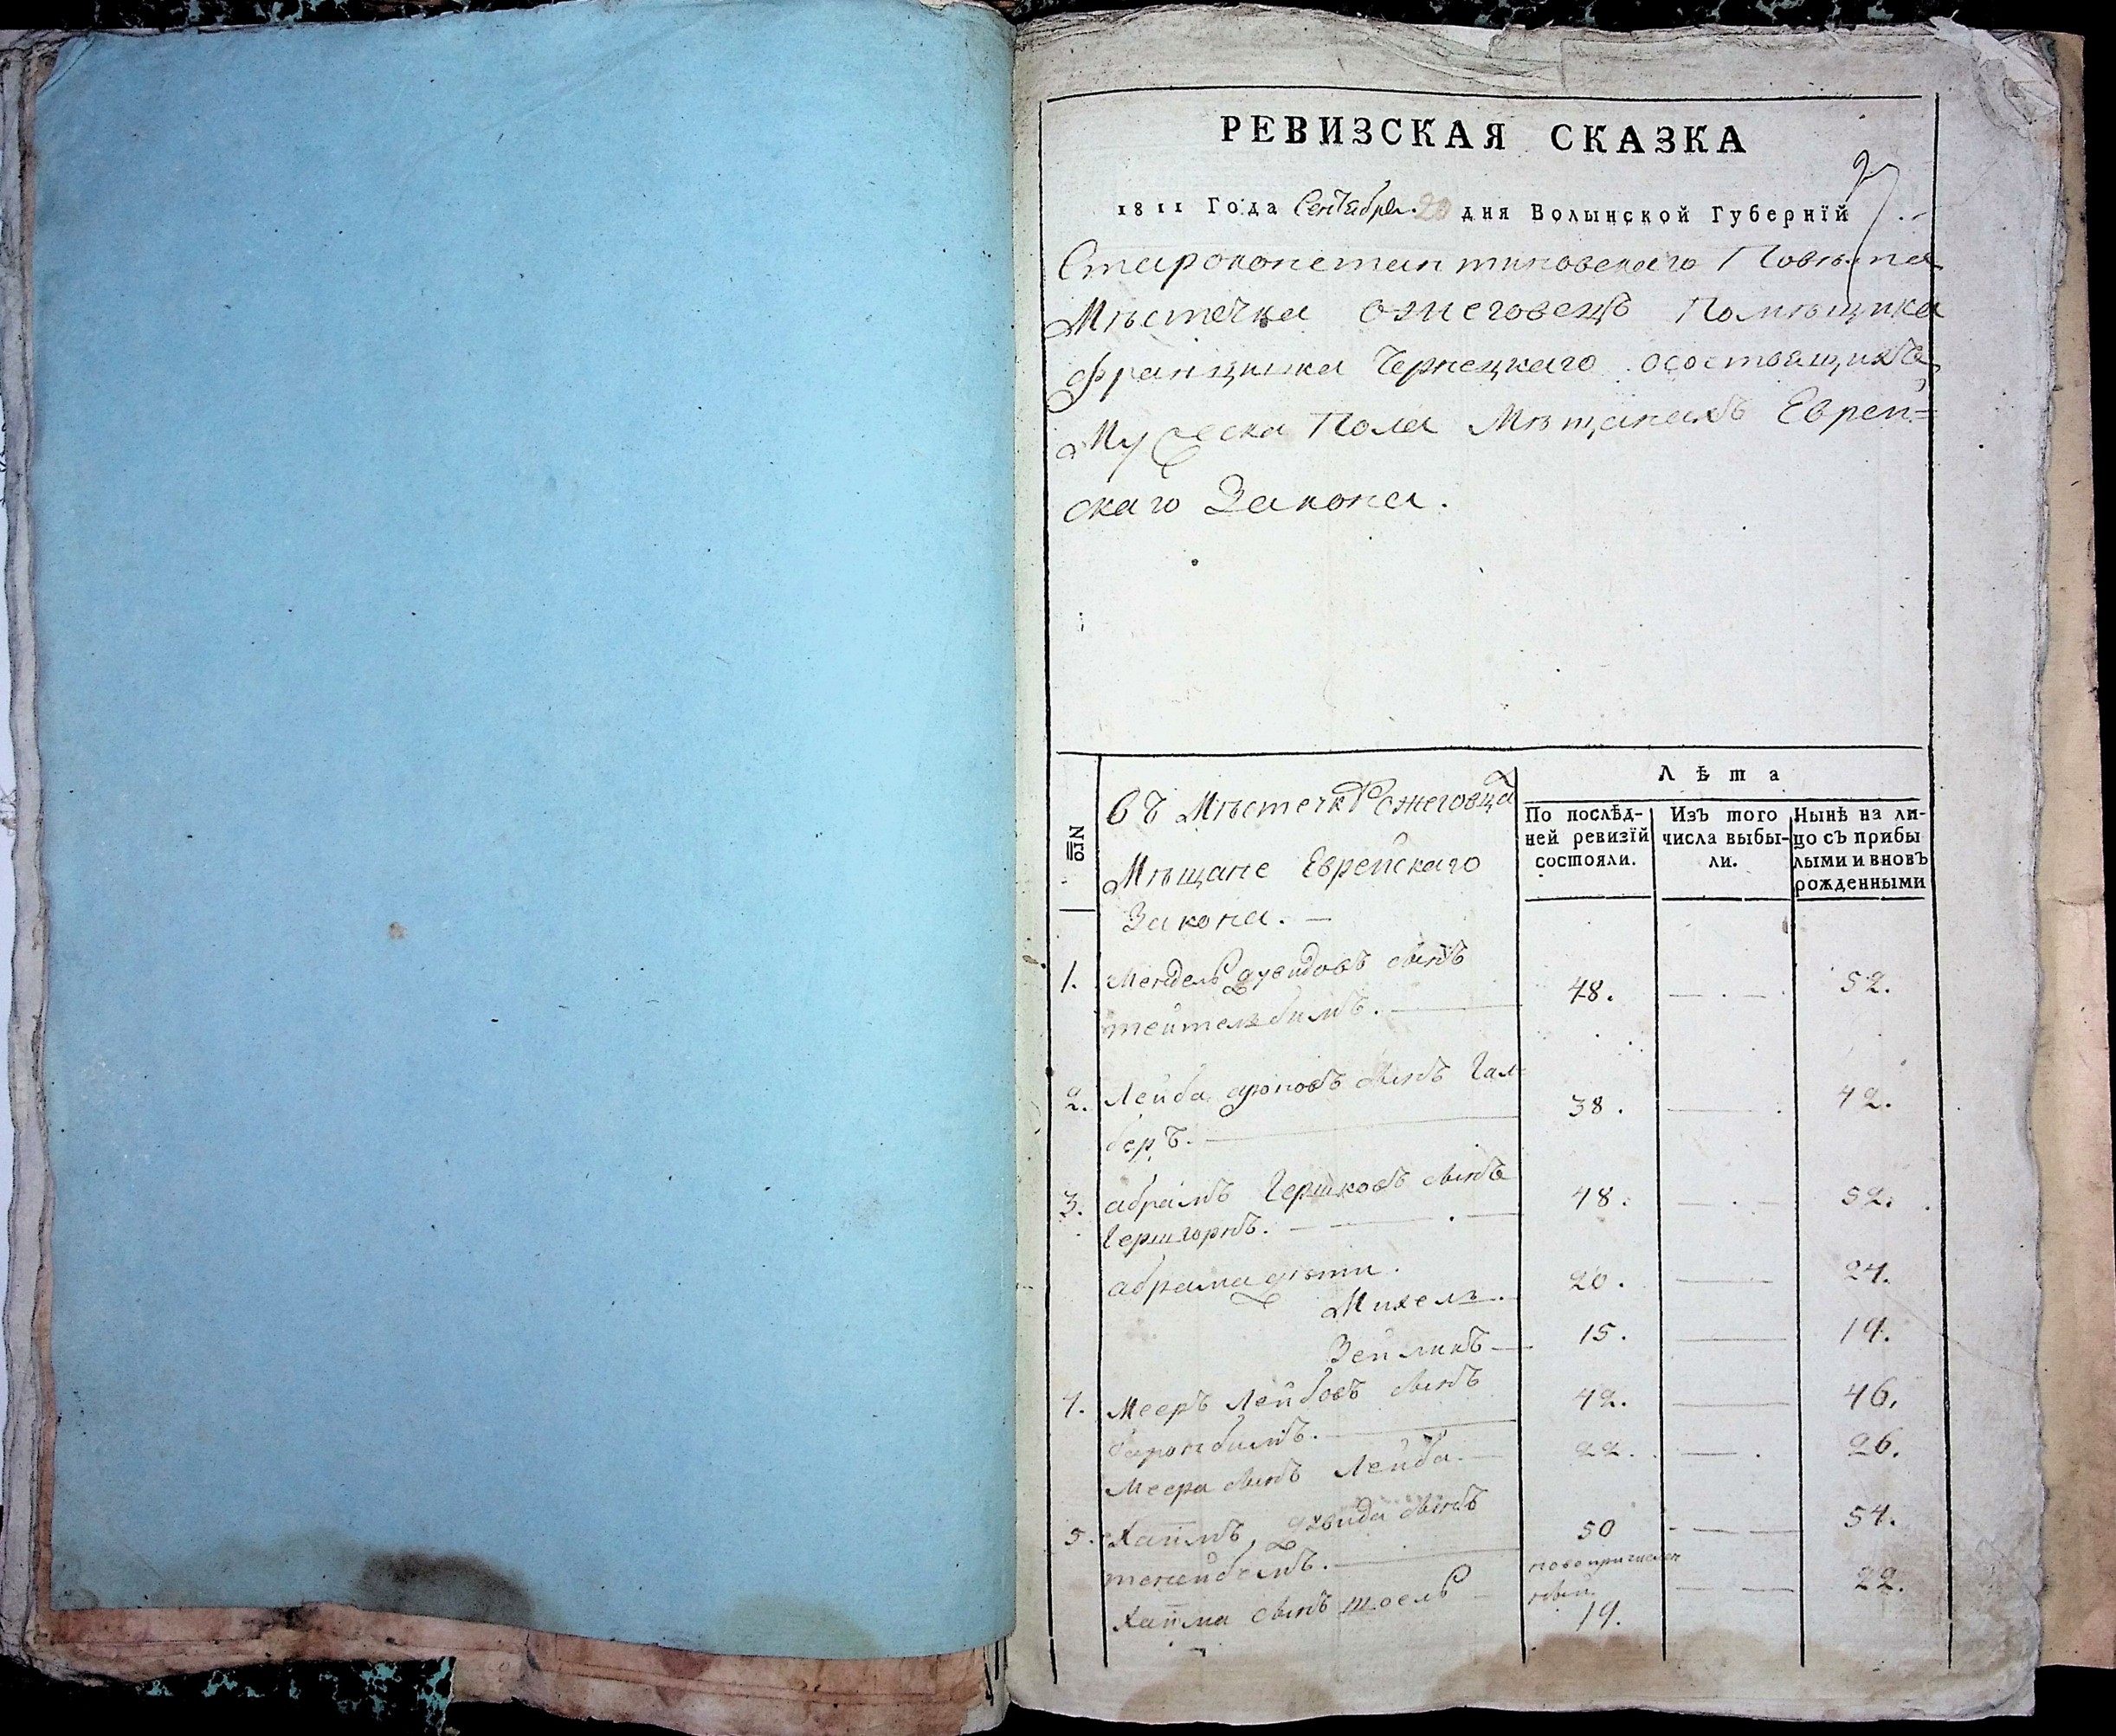 РЕВИЗСКАЯ СКАЗКА
27
1811 Года Сентября 20 дня Волынской Губернїй
Староконстантиновскаго Повѣта
Мѣстечка Ожеговецъ Помѣщика
Францишка Чернецкаго осостоящихъ
Мужеска Пола Мѣщанахъ Еврей=
скаго Закона.
№го
Въ Мѣстечкѣ Ожеговца
Мѣщане Еврейскаго
Закона. —
Лѣта
По послѣд-
ней ревизїй
состояли.
Изъ того
числа выбы-
ли.
Нынѣ на ли-
цо съ прибы
лыми и вновь
рожденными
1. Мендель Дувидовъ сынъ 48. 52.
тейтельбимъ.
2. Лейба сынъ Гал- 38. 42.
беръ.
3. абрамъ Гершковъ сынъ 48. 52.
Гершторнъ.
абрама дѣти.
Михель. 20. 24.
Зейликъ 15. 19.
4. Мееръ Лейбовъ сынъ 42. 46.
Меера сынъ Лейба. 22. 26.
5. Хаимъ, Дувида сынъ 50 54.
Хаима сынъ Шоель новопричислен
ный 19. 22.